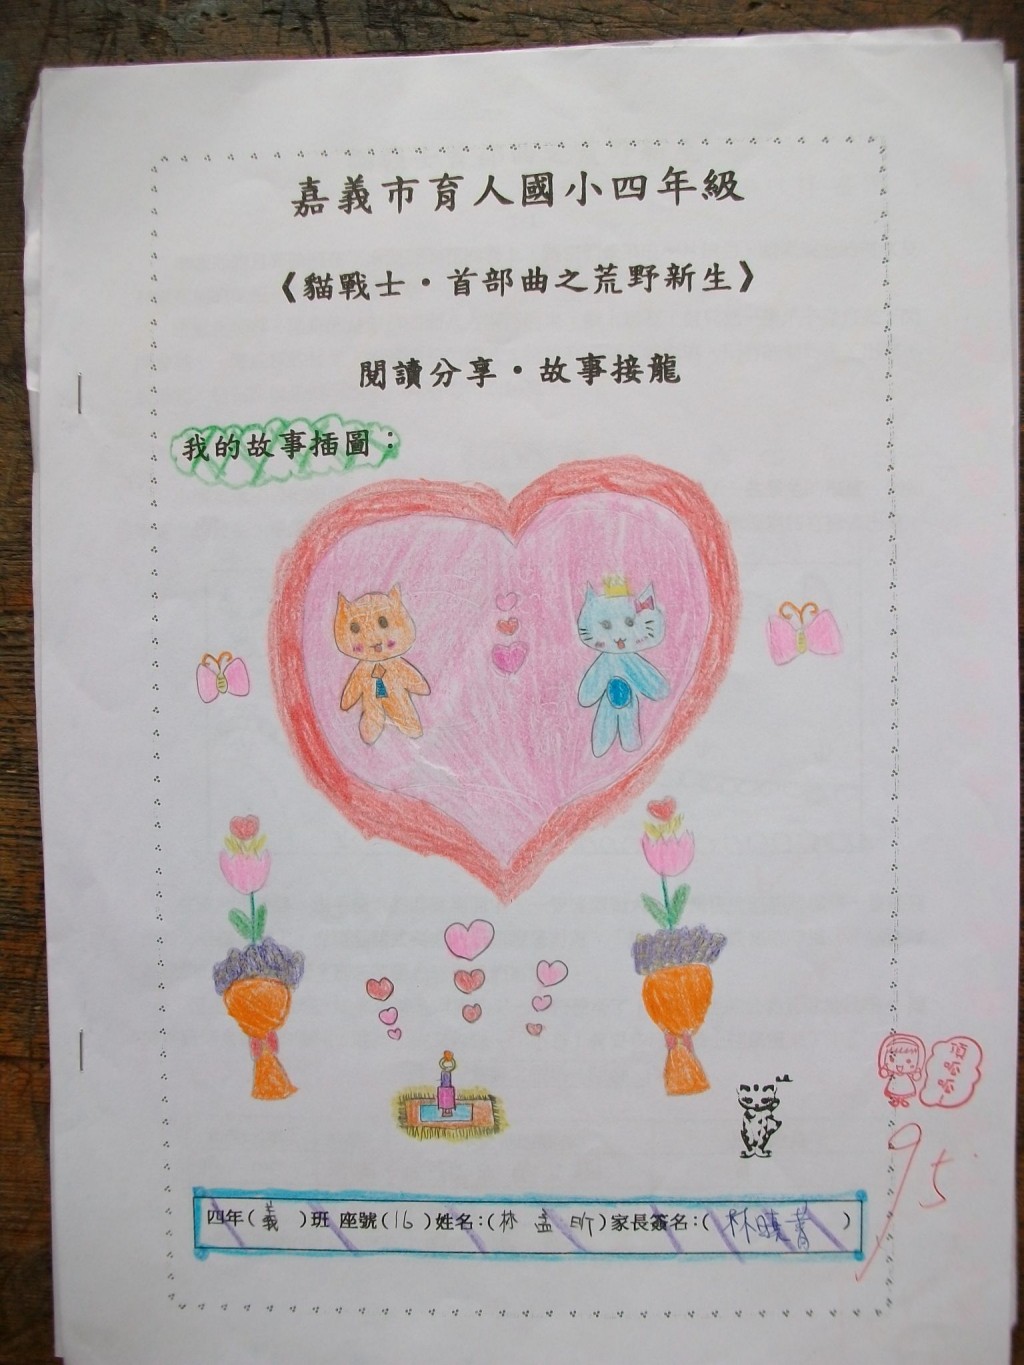 嘉義市育人國小四年級
《貓戰士·首部曲之荒野新生》
閱讀分享·故事接龍
我的故事插圖：
四年(義)班 座號(16)姓名：(林孟昕)家長簽名：(林曉菁)
95